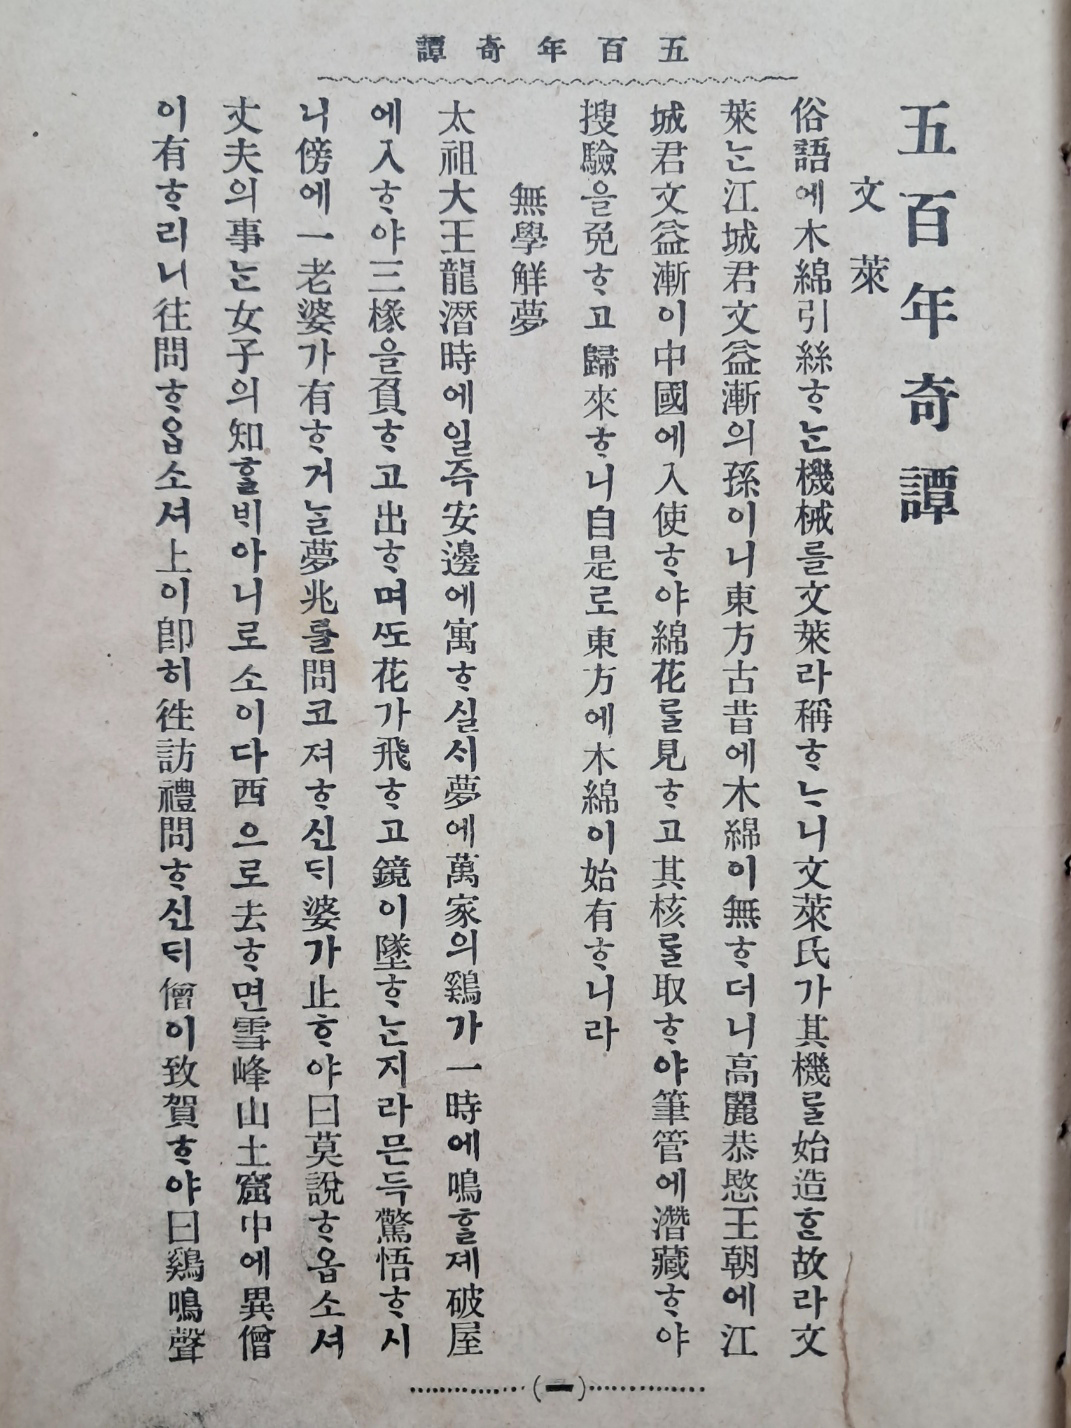 五百年奇譚
五百年奇譚
文萊
俗語에木綿引絲ᄒᆞᄂᆞᆫ機械를文萊라稱ᄒᆞᄂᆞ니文萊氏가其機ᄅᆞᆯ始造ᄒᆞᆫ故라文
萊ᄂᆞᆫ江城君文益漸의孫이니東方古昔에木綿이無ᄒᆞ더니高麗恭愍王朝에江
城君文益漸이中國에入使ᄒᆞ야綿花ᄅᆞᆯ見ᄒᆞ고其核ᄅᆞᆯ取ᄒᆞ야筆管에潛藏ᄒᆞ야
搜驗을免ᄒᆞ고歸來ᄒᆞ니自是로東方에木綿이始有ᄒᆞ니라
無學解夢
太祖大王龍潛時에일즉安邊에寓ᄒᆞ실시夢에萬家의鷄가一時에鳴ᄒᆞᆯ졔破屋
에入ᄒᆞ야三椽을負ᄒᆞ고出ᄒᆞ며ᄯᅩ花가飛ᄒᆞ고鏡이墜ᄒᆞᄂᆞᆫ지라믄득驚悟ᄒᆞ시
니傍에一老婆가有ᄒᆞ거ᄂᆞᆯ夢兆를問코져ᄒᆞ신ᄃᆡ婆가止ᄒᆞ야曰莫說ᄒᆞ옵소셔
丈夫의事ᄂᆞᆫ女子의知ᄒᆞᆯᄇᆡ아니로소이다西으로去ᄒᆞ면雪峰山土窟中에異僧
이有ᄒᆞ리니往問ᄒᆞᄋᆞᆸ소셔上이卽히徃訪禮問ᄒᆞ신ᄃᆡ僧이致賀ᄒᆞ야曰鷄鳴聲
(一)